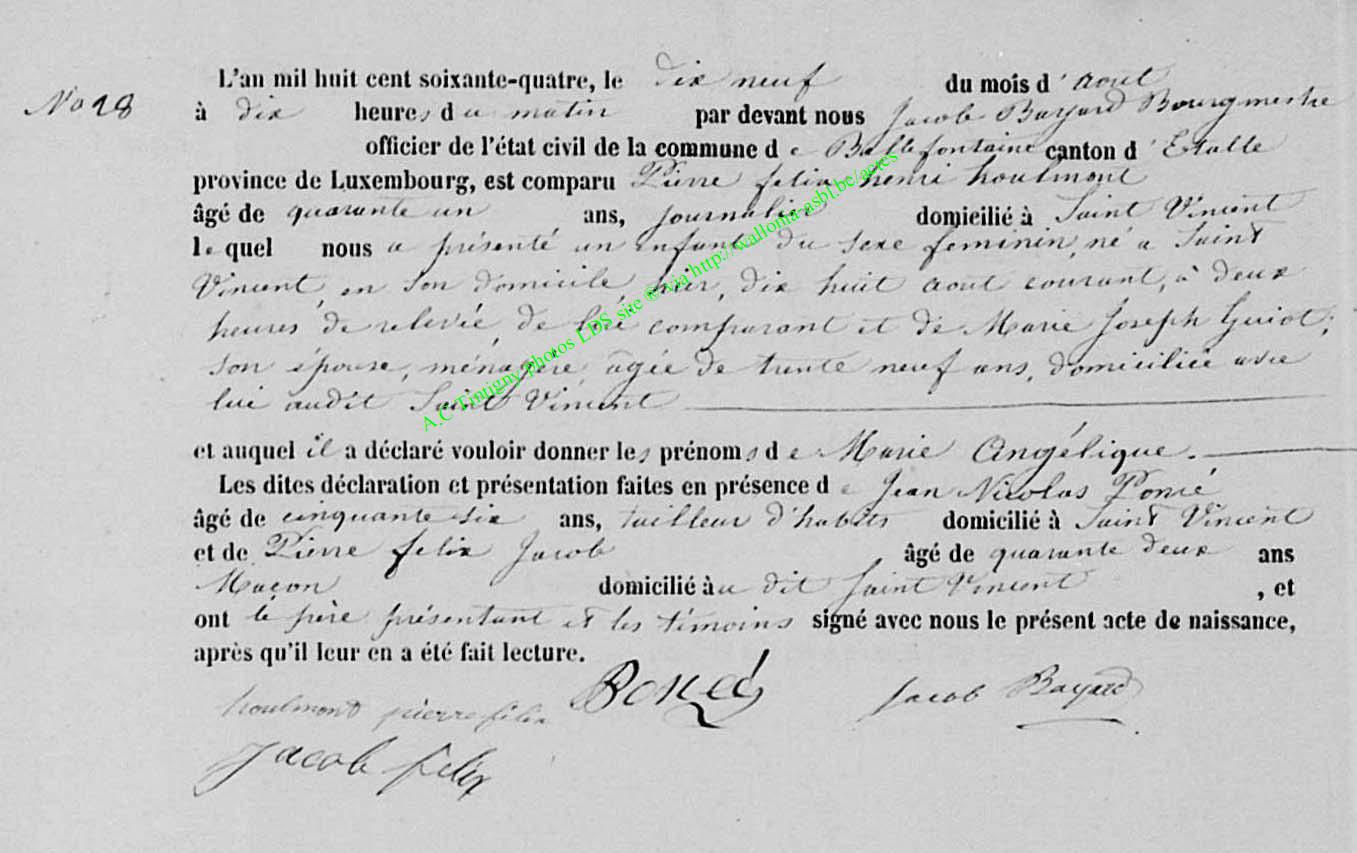 L'an mil huit cent soixante-quatre, le dix neuf du mois d'aout
No 28 à dix heures du matin par devant nous Jacob Bayard Bourgmestre
officier de l'état civil de la commune de Bellefontaine canton d'Etalle
province de Luxembourg, est comparu Pierre felix henri houlmont
âgé de quarante un ans, journalier domicilié à Saint Vincent
lequel nous a présenté un enfant du sexe féminin, né a Saint
Vincent, en son domicile, hier, dix huit aout courant, à deux
heures de relevée, de lui comparant et de Marie Joseph Guiot,
son épouse, ménagère âgée de trente neuf ans, domiciliée avec
lui audit Saint Vincent
et auquel il a déclaré vouloir donner les prénoms de Marie Angélique.
Les dites déclaration et présentation faites en présence de Jean Nicolas
âgé de cinquante six ans, tailleur d'habits domicilié à Saint Vincent
et de Pierre felix Jacob âgé de quarante deux ans
Maçon domicilié au dit Saint Vincent, et
ont le père présentant et les témoins signé avec nous le présent acte de naissance,
après qu'il leur en a été fait lecture.
houlmont pierre felix
Jacob Bayard
Jacob felix
A.C Tintigny photos LDS site © via http://wallonia-asbl.be/actes